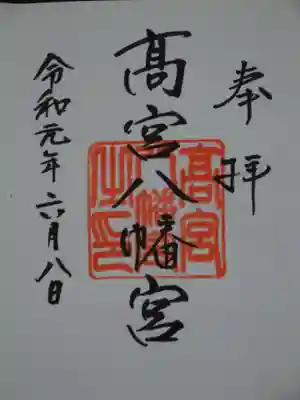 奉拝
髙宮八幡宮
令和元年六月八日
髙宮八幡宮之印